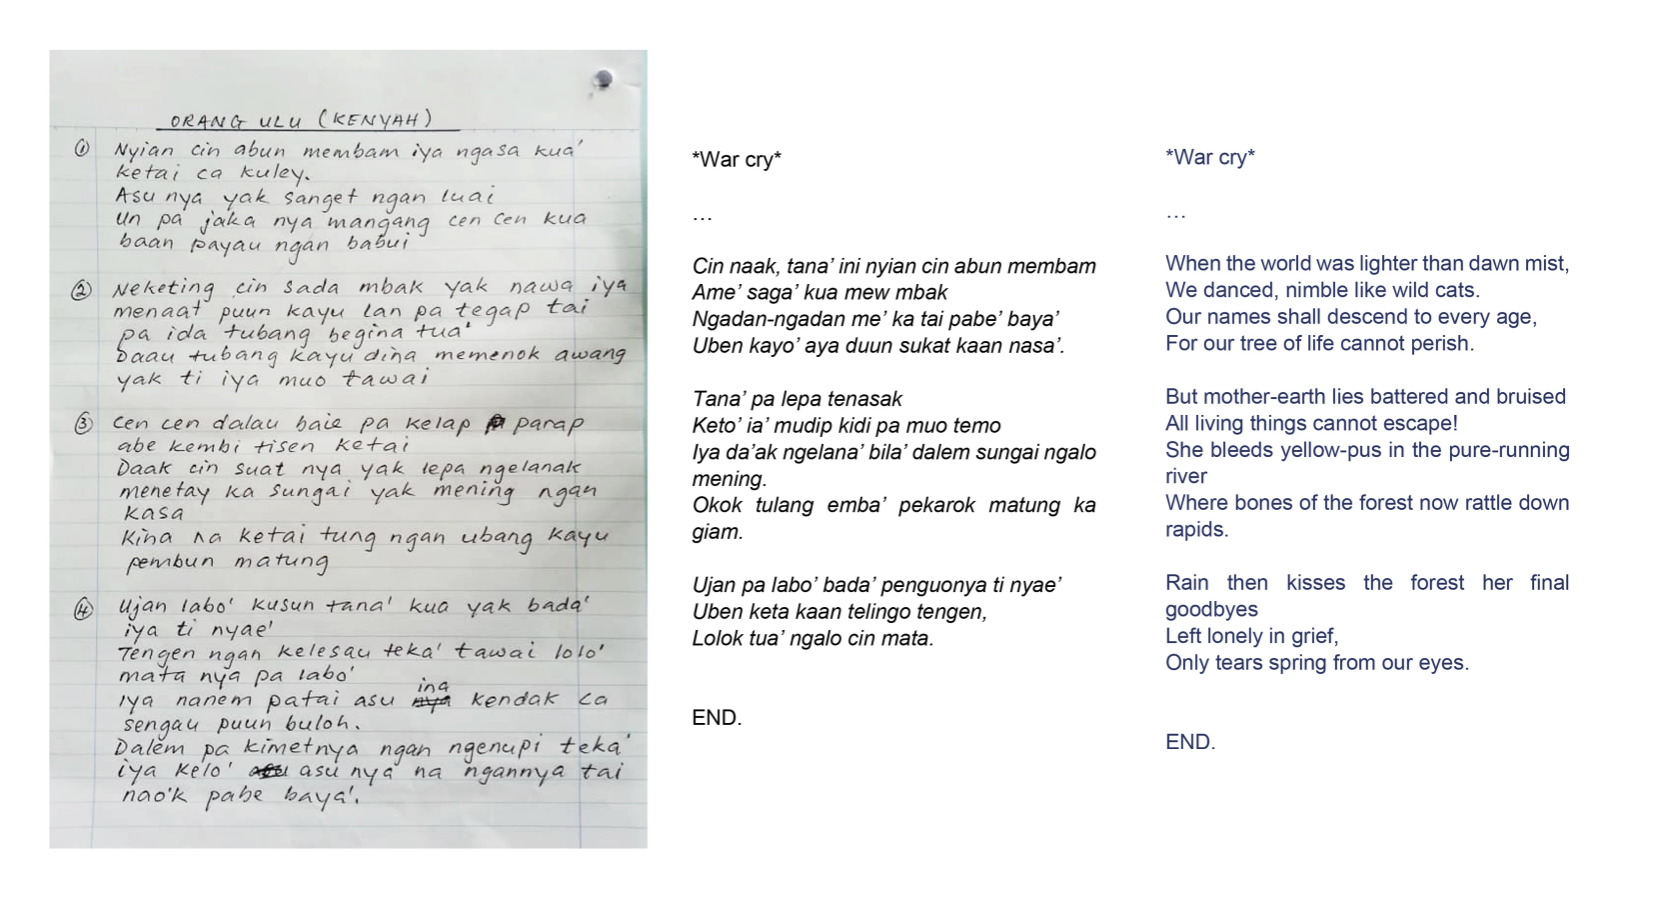 ORANG ULU (KENYAH)
① Nyian cin abun membam iya ngasa kua'
ketai ca kuley.
Asu nya yak sanget ngan luai
un pa jaka nya mangang cen cen kua
baan payau ngan babui
② Neketing cin sada mbak yak nawa iya
menaat puun kayu lan pa tegap tai
pa ida tubang begina tua'
Daau tubang kayu dina memenok awang
yak ti iya muo tawai
③ Cen cen dalau baie pa kelap parap
abe kembi tisen ketai
Daak cin suat nya yak lepa ngelanak
menetay ka sungai yak mening ngan
kasa
Kina na ketai tung ngan ubang kayu
pembun matung
④ Ujan labo' kusun tana' kua yak bada'
iya ti nyae'
Tengen ngan kelesau teka' tawai lolo'
mata nya pa labo'
Iya nanem patai asu ina kendak ca
sengau puun buloh.
Dalem pa kimetnya ngan ngenupi teka'
iya kelo' asu nya na ngannya tai
nao'k pabe baya'.
*War cry*
…
Cin naak, tana' ini nyian cin abun membam
Ame' saga' kua mew mbak
Ngadan-ngadan me' ka tai pabe' baya'
Uben kayo' aya duun sukat kaan nasa'.
Tana' pa lepa tenasak
Keto' ia' mudip kidi pa muo temo
Iya da'ak ngelana' bila' dalem sungai ngalo
mening.
Okok tulang emba' pekarok matung ka
giam.
Ujan pa labo' bada' penguonya ti nyae'
Uben keta kaan telingo tengen,
Lolok tua' ngalo cin mata.
END.
*War cry*
…
When the world was lighter than dawn mist,
We danced, nimble like wild cats.
Our names shall descend to every age,
For our tree of life cannot perish.
But mother-earth lies battered and bruised
All living things cannot escape!
She bleeds yellow-pus in the pure-running
river
Where bones of the forest now rattle down
rapids.
Rain then kisses the forest her final
goodbyes
Left lonely in grief,
Only tears spring from our eyes.
END.